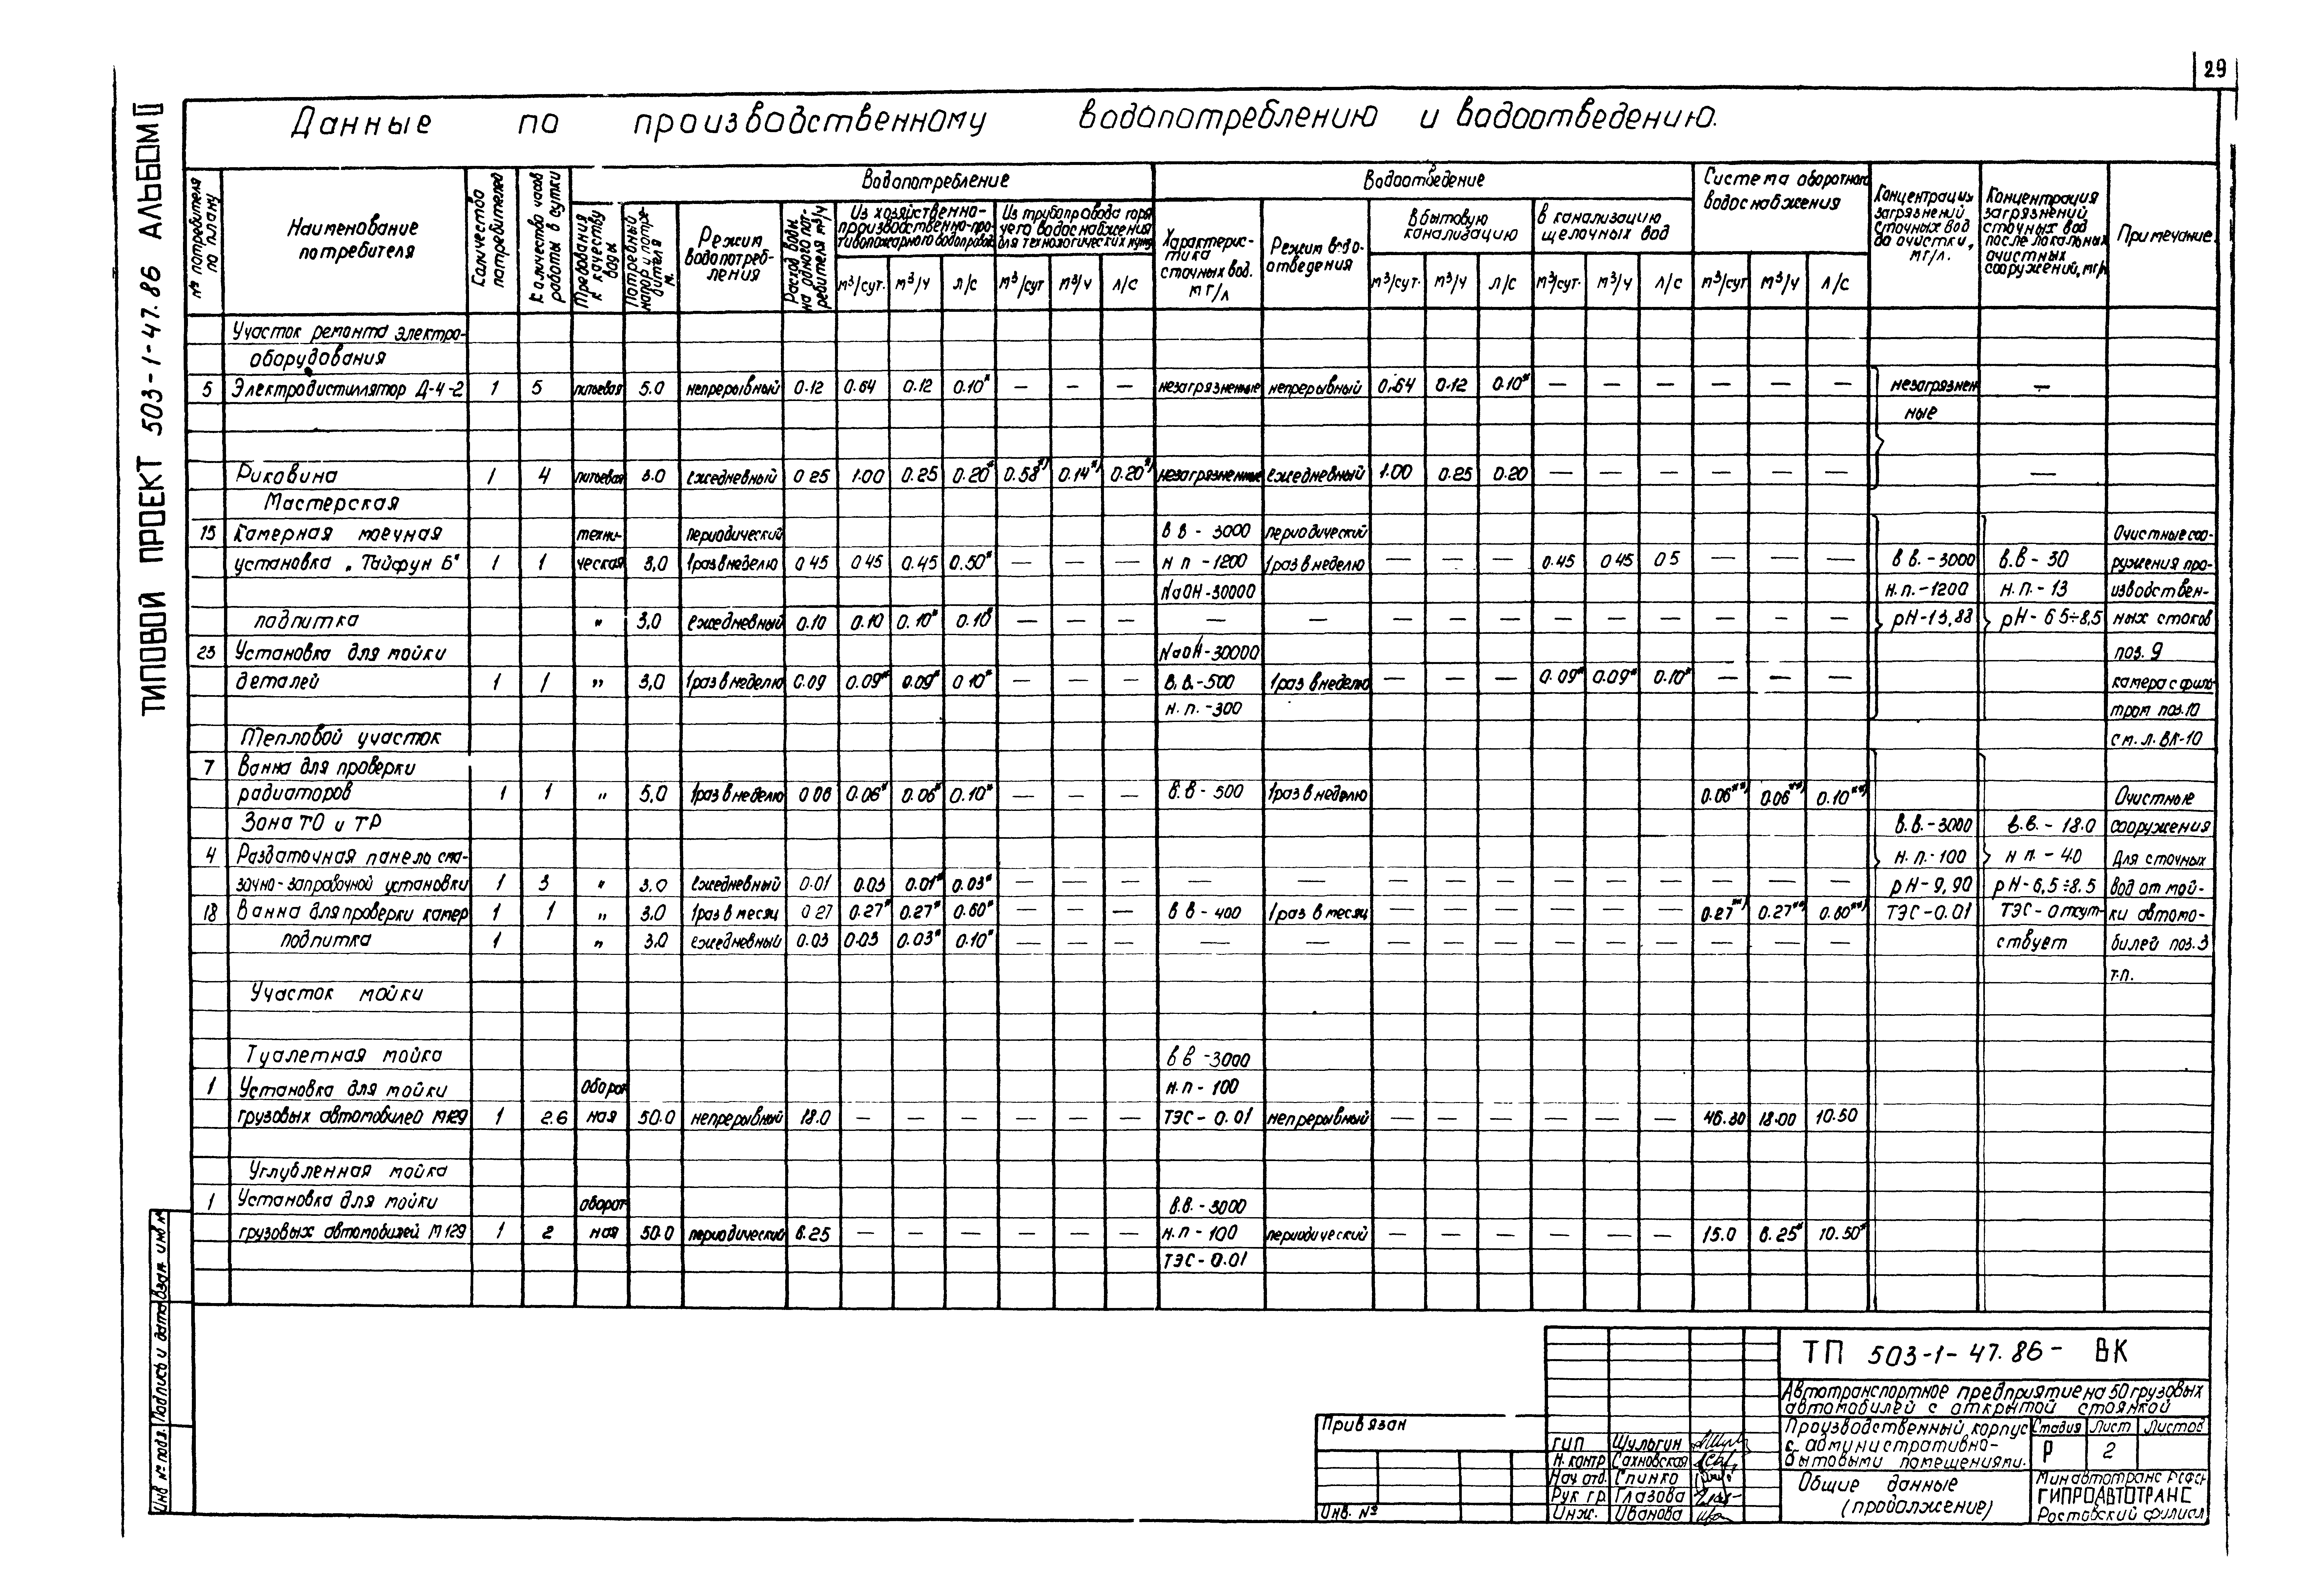 29
ТИПОВОЙ ПРОЕКТ 503-1-47.86 АЛЬБОМ II
Данные по производственному водопотреблению и водоотведению.
№ потребителя по плану
Наименование потребителя
Количество потребителей
Количество часов работы в сутки
Водопотребление
Требования к качеству воды
Потребный напор у потребителя м.
Режим водопотребления
Расход воды на одного потребителя м³/ч
Из хозяйственно-производственно-противопожарного водопровода
Из трубопровода горячего водоснабжения для технологических нужд
м³/сут. м³/ч л/с м³/сут м³/ч л/с
Водоотведение
Характеристика сточных вод. мг/л
Режим водоотведения
в бытовую канализацию
в канализацию щелочных вод
м³/сут. м³/ч л/с м³/сут. м³/ч л/с
Система оборотного водоснабжения
м³/сут м³/ч л/с
Концентрация загрязнений сточных вод до очистки, мг/л.
Концентрация загрязнений сточных вод после локальных очистных сооружений, мг/л
Примечание
Участок ремонта электро-
оборудования
5 Электродистиллятор Д-4-2 1 5 питьевая 5.0 непрерывный 0.12 0.64 0.12 0.10* — — — незагрязненные непрерывный 0.64 0.12 0.10* — — — — — — незагрязнен —
ные
Раковина 1 4 питьевая 3.0 ежедневный 0 25 1.00 0.25 0.20* 0.58*) 0.14*) 0.20*) незагрязненные ежедневный 1.00 0.25 0.20 — — — — — — —
Мастерская
15 Камерная моечная техни- периодический в в - 3000 периодический Очистные соо-
установка „Тайфун Б" 1 1 ческая 3,0 1раз в неделю 0 45 0 45 0.45 0.50* — — — н п -1200 1раз в неделю — — — 0.45 0 45 0 5 — — — в в. -3000 в.в - 30 ружения про-
NaOH-30000 н.п.-1200 н.п.-13 изводствен-
подпитка " 3,0 ежедневный 0.10 0.10 0.10* 0.10* — — — — — — — — — — — — — — pH-13,88 pH- 6 5÷8,5 ных стоков
23 Установка для мойки NaOH-30000 поз. 9
деталей 1 1 " 3,0 1раз в неделю 0.09 0.09* 0.09* 0 10* — — — в.в.-500 1раз в неделю — — — 0.09* 0.09* 0.10* — — — камера с филь-
н.п.-300 тром поз.10
Тепловой участок см. л. ВК-10
7 Ванна для проверки
радиаторов 1 1 " 5,0 1раз в неделю 0 06 0.06* 0.06* 0.10* — — — в.в - 500 1раз в неделю 0.06**) 0.06**) 0.10**) Очистные
Зона ТО и ТР в.в.-3000 в.в.- 18.0 сооружения
4 Раздаточная панель сма- н.п.-100 н п. - 4.0 для сточных
зочно-заправочной установки 1 3 " 3.0 ежедневный 0.01 0.03 0.01* 0.03* — — — — — — — — — — — — — — pH-9,90 pH-6,5÷8.5 вод от мой-
18 Ванна для проверки камер 1 1 " 3.0 1раз в месяц 0 27 0.27* 0.27* 0.60* — — — в в - 400 1раз в месяц — — — — — — 0.27**) 0.27**) 0.60**) ТЭС-0.01 ТЭС-отсут- ки автомо-
подпитка 1 " 3.0 ежедневный 0.03 0.03 0.03* 0.10* — — — — — — — — — — — — — — ствует билей поз.3
т.п.
Участок мойки
Туалетная мойка в в -3000
1 Установка для мойки оборот н.п - 100
грузовых автомобилей М129 1 2.6 ная 50.0 непрерывный 18.0 — — — — — — ТЭС - 0.01 непрерывный — — — — — — 46.80 18.00 10.50
Углубленная мойка
1 Установка для мойки оборот в.в. -3000
грузовых автомобилей М129 1 2 ная 50.0 периодический 6.25 — — — — — — н.п - 100 периодический — — — — — — 15.0 6.25* 10.50*
ТЭС - 0.01
Инв № подл. Подпись и дата Взам. инв №
Привязан
Инв. №
ТП 503-1-47.86- ВК
Автотранспортное предприятие на 50 грузовых
автомобилей с открытой стоянкой
Производственный корпус
с административно-
бытовыми помещениями.
Стадия Лист Листов
Р 2
ГИП Шульгин
Н. контр Сахновская
Нач. отд. Спинко
Рук гр. Глазова
Инж. Иванова
Общие данные
(продолжение)
Минавтотранс РСФСР
ГИПРОАВТОТРАНС
Ростовский филиал